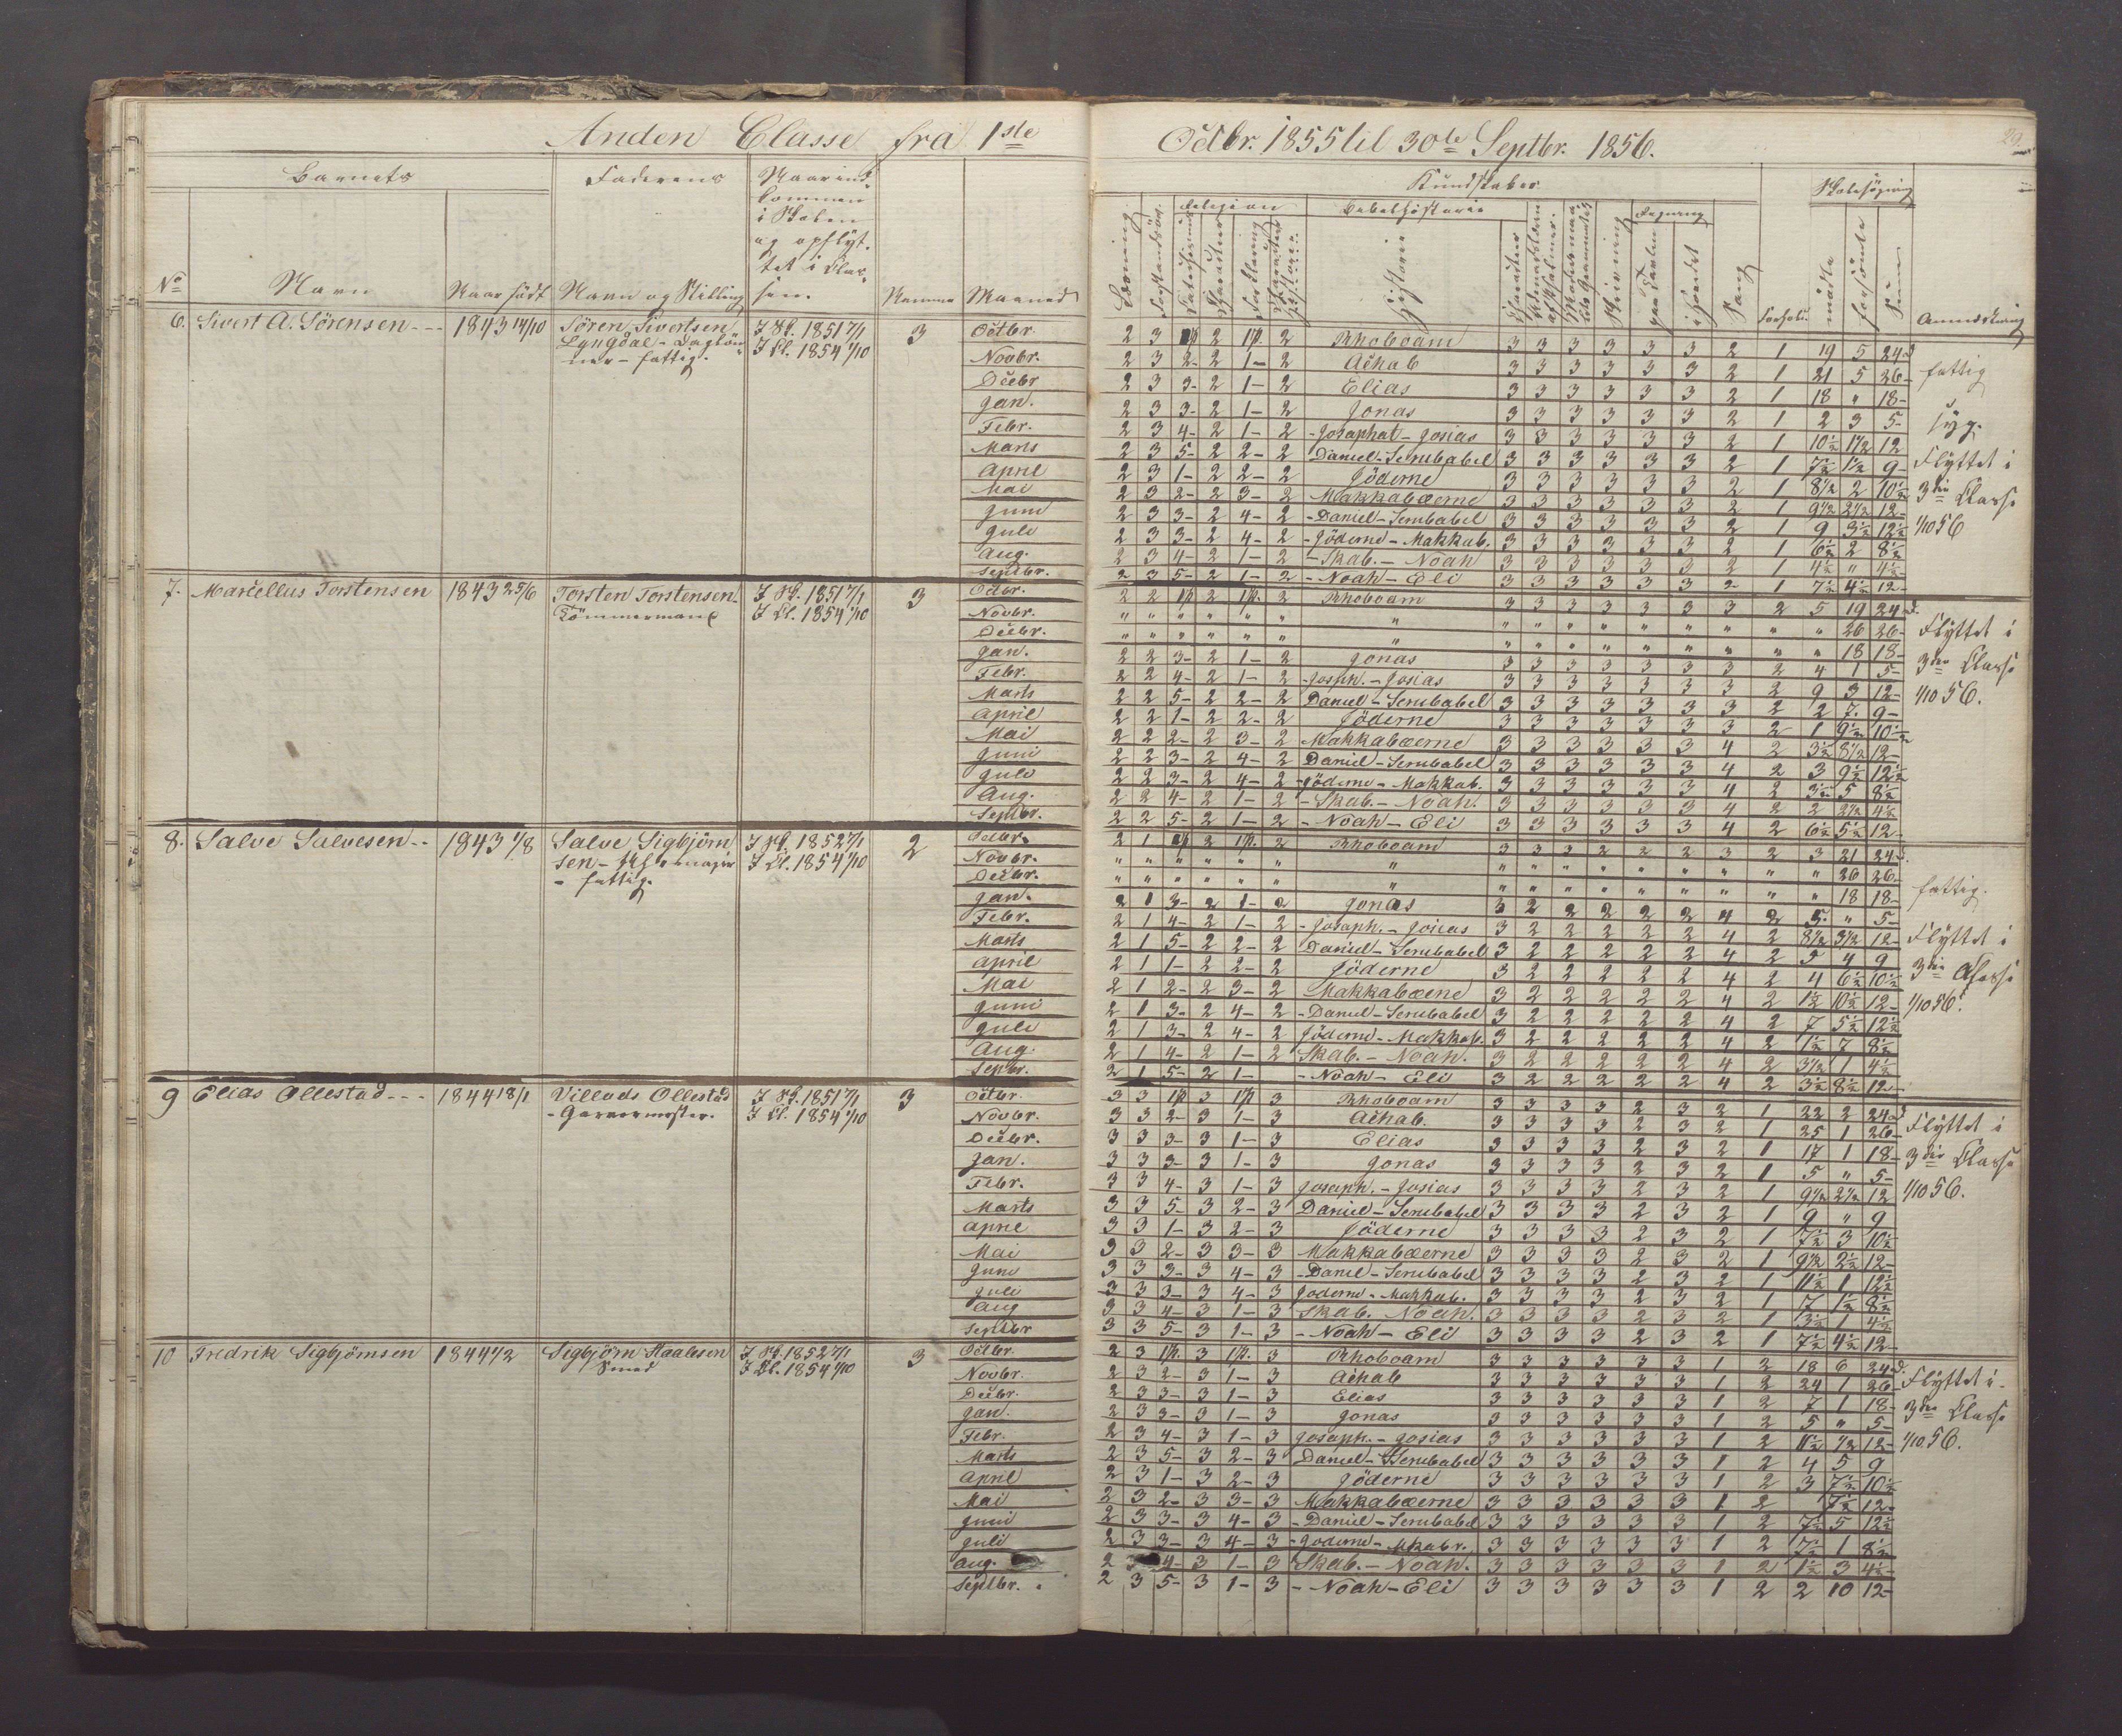 Anden Classe fra 1ste Octbr. 1855 til 30te Septbr. 1856.
29
Barnets
Faderens
Naar ind-
kommen
i Skolen
og opflyt-
tet i Clas-
sen.
No
Navn
Naar født
Navn og Stilling
Nummer
Maaned
Kundskaber
Skolesøgning
Læsning
Religion
Bibelhistorie
Historie
Skrivning
Regning
i Hovedet
Sang
Forhold
mødte
forsømte
Sum
Anmærkning
6. Sivert A. Sörensen 1843 14/10
Sören Sivertsen
Lyngdal - Daglön-
ner - fattig.
I Sk. 1851 7/1
I Cl. 1854 1/10
3
Octbr. 2 3 2 1p. 2 Rhoboam 3 3 3 3 3 3 2 1 19 5 24
Novbr. 2 3 2 2 1 2 Achab 3 3 3 3 3 3 2 1 21 5 26
Decbr 2 3 3 2 1 2 Elias 3 3 3 3 3 3 2 1 18 " 18
Jan. 2 3 3 2 1 2 Jonas 3 3 3 3 3 3 2 1 2 3 5
Febr. 2 3 4 2 1 2 Josaphat - Josias 3 3 3 3 3 3 2 1 10½ 1½ 12
Marts 2 3 5 2 2 2 Daniel - Serubabel 3 3 3 3 3 3 2 1 7½ 1½ 9
April 2 3 1 2 2 2 Jöderne 3 3 3 3 3 3 2 1 8½ 2 10½
Mai 2 3 2 2 3 2 Makkabæerne 3 3 3 3 3 3 2 1 9½ 2½ 12
Juni 2 3 3 2 4 2 Daniel - Serubabel 3 3 3 3 3 3 2 1 9 3½ 12½
Juli 2 3 3 2 4 2 Jöderne - Makkab. 3 3 3 3 3 3 2 1 6½ 2 8½
Aug. 2 3 4 2 1 2 Skab. - Noah 3 3 3 3 3 3 2 1 4½ " 4½
Septbr. 2 3 5 2 1 2 Noah - Eli 3 3 3 3 3 3 2 1 7½ 4½ 12
fattig
syg.
Flyttet i
3die Classe
1/10 56
7. Marcellus Torstensen 1843 25/6
Torsten Torstensen
Tömmermand
I Sk. 1851 7/1
I Cl. 1854 1/10
3
Octbr. 2 2 1p 2 1p. 2 Rhoboam 3 3 3 3 3 3 3 2 5 19 24
Novbr. " " " " " " " " " " " " " " " " 26 26
Decbr. " " " " " " " " " " " " " " " " 18 18
Jan. 2 2 3 2 1 2 Jonas 3 3 3 3 3 3 3 2 4 1 5
Febr. 2 2 4 2 1 2 Josaph. - Josias 3 3 3 3 3 3 3 2 9 3 12
Marts 2 2 5 2 2 2 Daniel - Serubabel 3 3 3 3 3 3 3 2 2 7 9
April 2 2 1 2 2 2 Jöderne 3 3 3 3 3 3 3 2 1 9½ 10½
Mai 2 2 2 2 3 2 Makkabæerne 3 3 3 3 3 3 4 2 3½ 8½ 12
Juni 2 2 3 2 4 2 Daniel - Serubabel 3 3 3 3 3 3 4 2 3 9½ 12½
Juli 2 2 3 2 4 2 Jöderne - Makkab. 3 3 3 3 3 3 4 2 3½ 5 8½
Aug. 2 2 4 2 1 2 Skab. - Noah. 3 3 3 3 3 3 4 2 2 2½ 4½
Septbr. 2 2 5 2 1 2 Noah - Eli 3 3 3 3 3 3 4 2 6½ 5½ 12
Flyttet i
3die Classe
1/10 56.
8. Salve Salvesen 1843 1/8
Salve Sigbjörn-
sen -
- fattig.
I Sk. 1852 7/1
I Cl. 1854 1/10
2
Octbr. 2 1 2 1p. 2 Rhoboam 3 3 3 2 2 2 3 2 3 21 24
Novbr. " " " " " " " " " " " " " " " " 26 26
Decbr. " " " " " " " " " " " " " " " " 18 18
Jan. 2 1 3 2 1 2 Jonas 3 2 2 2 2 2 4 2 5 " 5
Febr. 2 1 4 2 1 2 Josaph. - Josias 3 2 2 2 2 2 4 2 8½ 3½ 12
Marts 2 1 5 2 2 2 Daniel - Serubabel 3 2 2 2 2 2 4 2 5 4 9
April 2 1 1 2 2 2 Jöderne 3 2 2 2 2 2 4 2 4 6½ 10½
Mai 2 1 2 2 3 2 Makkabæerne 3 2 2 2 2 2 4 2 1½ 10½ 12
Juni 2 1 3 2 4 2 Daniel - Serubabel 3 2 2 2 2 2 4 2 7 5½ 12½
Juli 2 1 3 2 4 2 Jöderne - Makkab. 3 2 2 2 2 2 4 2 1½ 7 8½
Aug. 2 1 4 2 1 2 Skab. - Noah. 3 2 2 2 2 2 4 2 3½ 1 4½
Septbr. 2 1 5 2 1 Noah - Eli 3 2 2 2 2 2 4 2 3½ 8½ 12
fattig.
Flyttet i
3die Classe
1/10 56.
9 Elias Ollestad 1844 18/1
Villads Ollestad
- Garvermester.
I Sk. 1851 7/1
I Cl. 1854 1/10
3
Octbr. 3 3 1p 3 1p 3 Rhoboam 3 3 3 3 2 3 2 1 22 2 24
Novbr. 3 3 2 3 1 3 Achab. 3 3 3 3 2 3 2 1 25 1 26
Decbr. 3 3 3 3 1 3 Elias 3 3 3 3 2 3 2 1 17 1 18
Jan. 3 3 3 3 1 3 Jonas 3 3 3 3 2 3 2 1 5 " 5
Febr. 3 3 4 3 1 3 Josaph. - Josias 3 3 3 3 2 3 2 1 9½ 2½ 12
Marts 3 3 5 3 2 3 Daniel - Serubabel 3 3 3 3 2 3 2 1 9 " 9
April 3 3 1 3 2 3 Jöderne 3 3 3 3 2 3 2 1 7½ 3 10½
Mai 3 3 2 3 3 3 Makkabæerne 3 3 3 3 2 3 2 1 9½ 2½ 12
Juni 3 3 3 3 4 3 Daniel - Serubabel 3 3 3 3 2 3 2 1 11½ 1 12½
Juli 3 3 3 3 4 3 Jöderne - Makkab. 3 3 3 3 2 3 2 1 7 1½ 8½
Aug 3 3 4 3 1 3 Skab. Noah. 3 3 3 3 2 3 2 1 3½ 1 4½
Septbr 3 3 5 3 1 3 Noah - Eli 3 3 3 3 2 3 2 1 7½ 4½ 12
Flyttet i
3die Classe
1/10 56.
10 Fredrik Sigbjörnsen 1844 1/2
Sigbjörn Staalesen
Smed
I Sk. 1852 7/1
I Cl. 1854 1/10
3
Octbr. 2 3 1p. 3 1p. 3 Rhoboam 3 3 3 3 3 3 1 2 18 6 24
Novbr. 2 3 2 3 1 3 Achab 3 3 3 3 3 3 1 2 24 1 26
Decbr. 2 3 3 3 1 3 Elias 3 3 3 3 3 3 1 2 7 1 18
Jan. 2 3 3 3 1 3 Jonas 3 3 3 3 3 3 1 2 5 " 5
Febr. 2 3 4 3 1 3 Josaph. - Josias 3 3 3 3 3 3 1 2 11½ ½ 12
Marts 2 3 5 3 2 3 Daniel - Serubabel 3 3 3 3 3 3 1 2 4 5 9
April 2 3 1 3 2 3 Jöderne 3 3 3 3 3 3 1 2 3 7½ 10½
Mai 2 3 2 3 3 3 Makkabæerne 3 3 3 3 3 3 1 2 7½ 12
Juni 2 3 3 3 4 3 Daniel - Serubabel 3 3 3 3 3 3 1 2 7½ 5 12½
Juli 2 3 3 3 4 3 Joderne - Mkabr. 3 3 3 3 3 3 1 2 7½ 1 8½
Aug. 2 3 4 3 1 3 Skab. - Noah. 3 3 3 3 3 3 1 2 1½ 3 4½
Septbr. 2 3 5 3 1 3 Noah - Eli 3 3 3 3 3 3 1 2 2 10 12
Flyttet i
3die Classe
1/10 56.